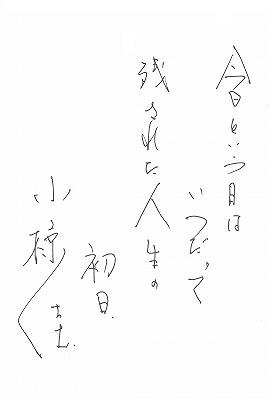 今日という日は
いつだって
残された人生の
初日.
小椋佳